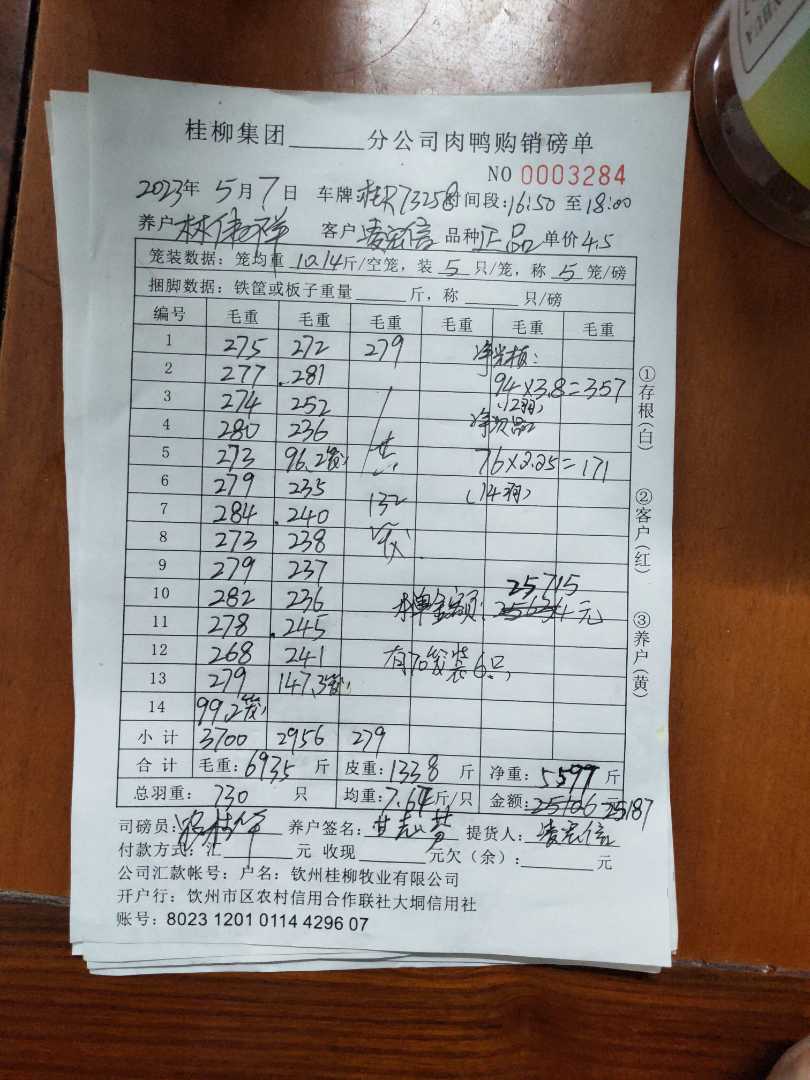 桂柳集团______分公司肉鸭购销磅单
NO 0003284
2023年 5月 7日 车牌:桂R73258 时间段:16:50 至 18:00
养户 林伟祥 客户 凌宏信 品种 正品 单价 4.5
笼装数据: 笼均重 10.14斤/空笼, 装 5 只/笼, 称 5 笼/磅
捆脚数据: 铁筐或板子重量______斤, 称______只/磅
编号 毛重 毛重 毛重 毛重 毛重 毛重
1 275 272 279 净光板:
2 277 .281 94×3.8=357
3 274 252 (12羽)
4 280 236 净次品
5 273 96.2 76×2.25=171
6 279 235 (14羽)
7 284 .240 132
8 273 238
9 279 237
10 282 236 25715
11 278 .245 单金额: 25634元
12 268 241 有70笼装6只
13 279 147.3
14 99.2
小计 3700 2956 279
合计 毛重:6935 斤 皮重:1338 斤 净重:5597 斤
总羽重: 730 只 均重:7.64斤/只 金额:25106元 25187
司磅员: 养户签名: 提货人:凌宏信
付款方式:汇______元 收现______元欠(余):______元
公司汇款帐号: 户名: 钦州桂柳牧业有限公司
开户行: 饮州市区农村信用合作联社大垌信用社
账号: 8023 1201 0114 4296 07
①存根(白)
②客户(红)
③养户(黄)